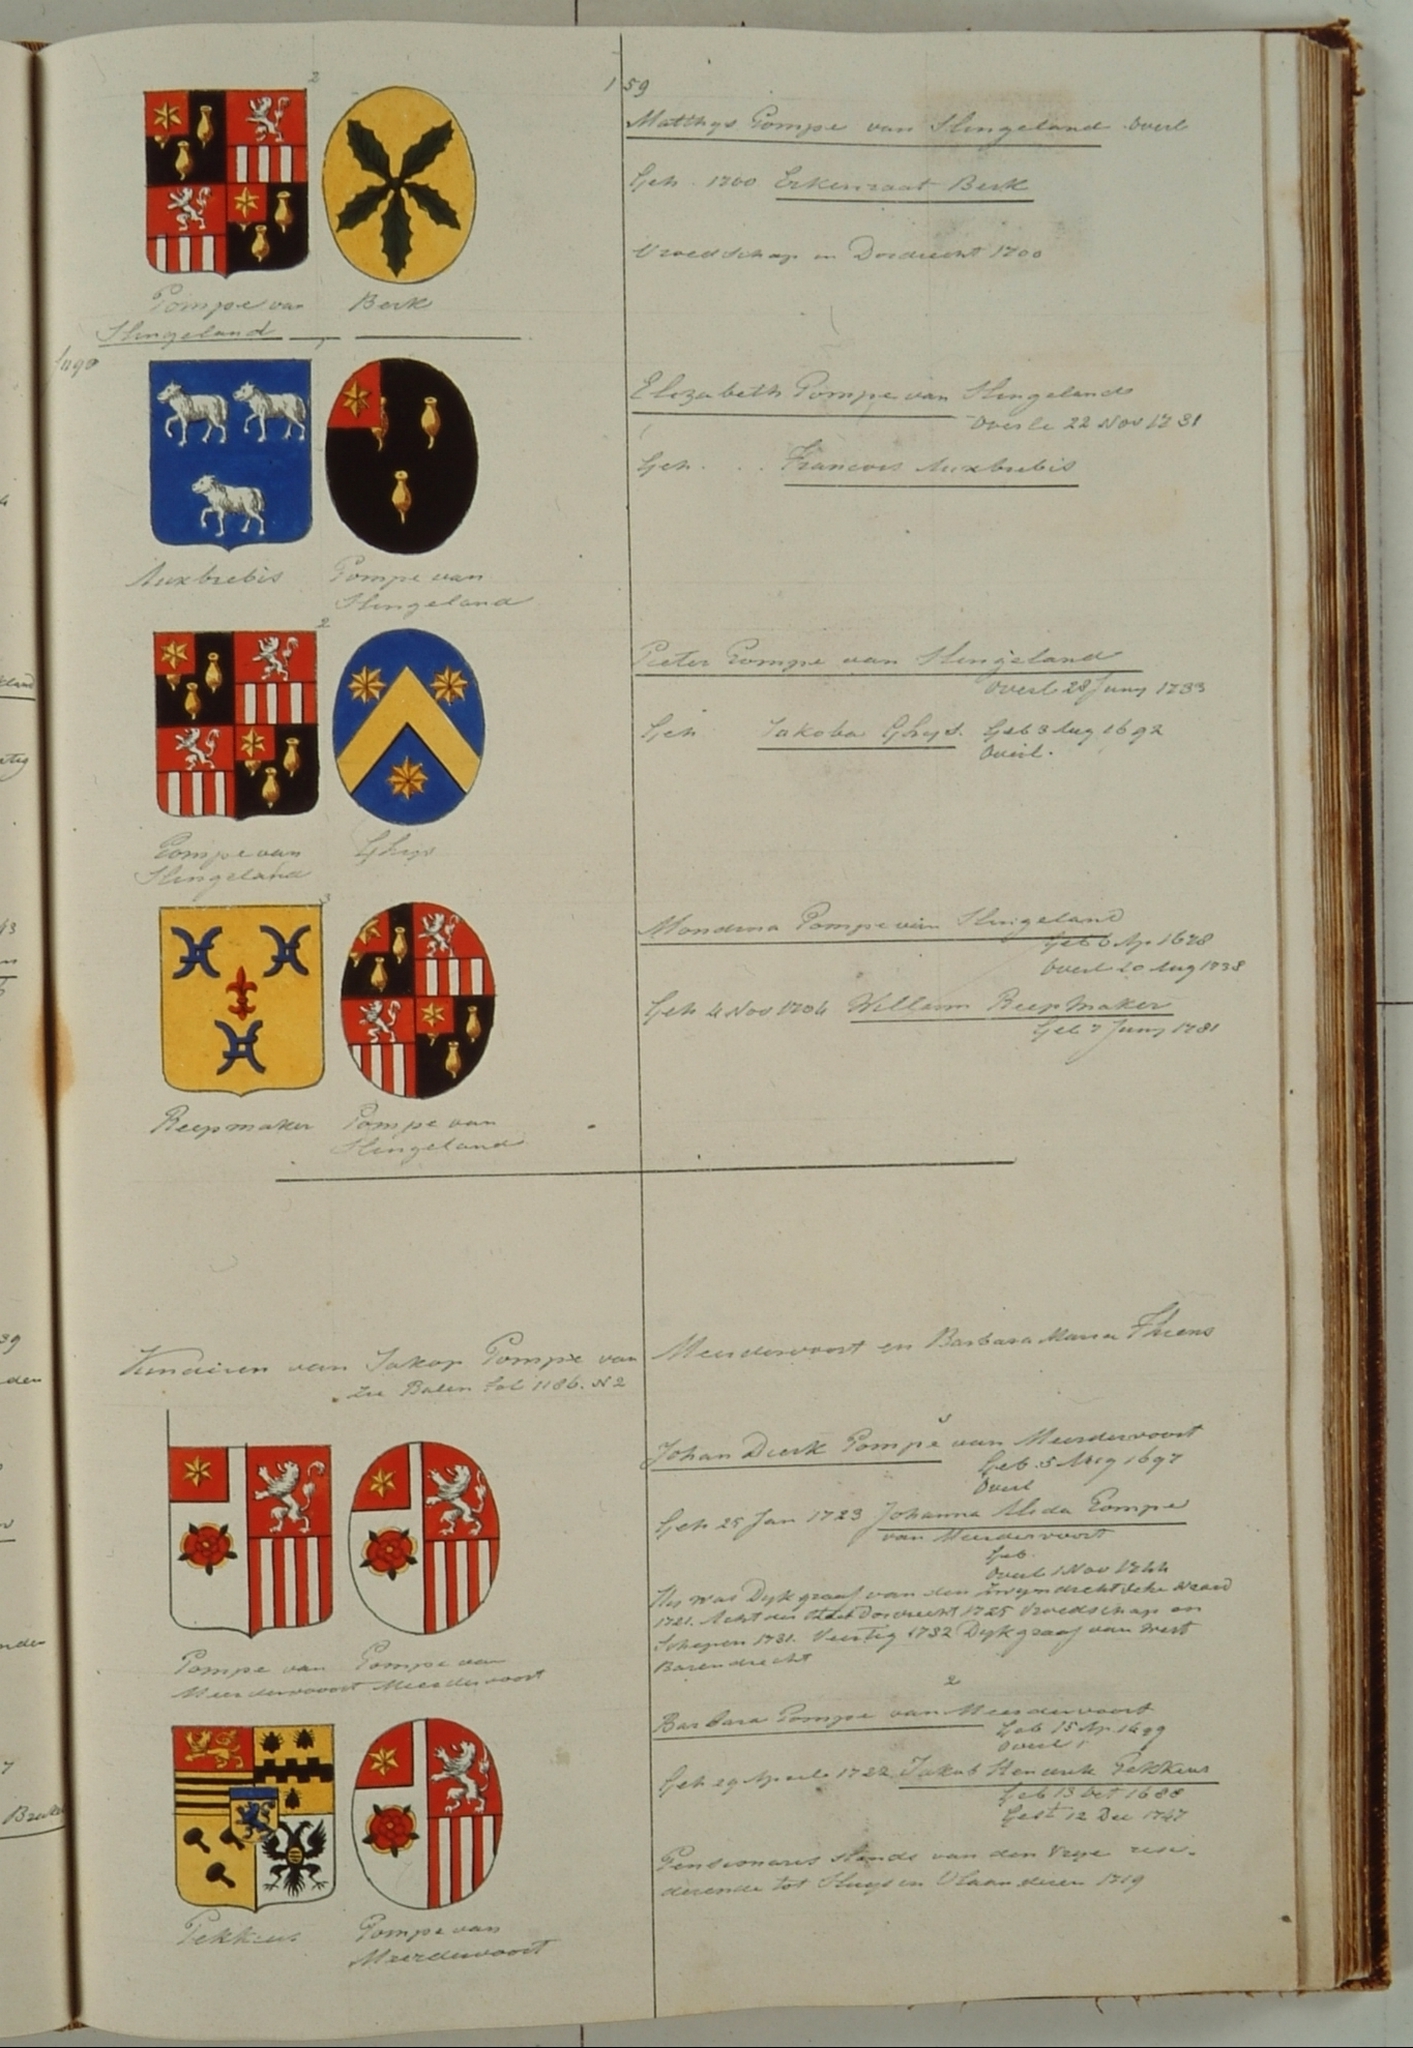 159
2
Matthys Pompe van Slingeland overl
Geh. 1700 Erkenraat Berk
Vroedschap in Dordrecht 1700
Pompe van Berk
Slingeland
Elizabeth Pompe van Slingeland
Overle 22 Nov 1731
Geh. . . Francois Auxbrebis
Auxbrebis Pompe van
Slingeland
2
Pieter Pompe van Slingeland
Overl 28 Juny 1733
Geh Jakoba Ghys. Geb 3 Aug 1692
Overl.
Pompe van Ghys
Slingeland
3
Mondina Pompe van Slingeland
Geb 6 Ap 1678
Overl 20 Aug 1738
Geh 4 Nov 1704 Willem Reepmaker
Geb 7 Juny 1781
Reepmaker Pompe van
Slingeland
Kinderen van Jakop Pompe van Meerdervoort en Barbara Maria Thiens
zie Balen fol 1186. N 2
Johan Dierk Pompe van Meerdervoort
Geb. 5 1697
Overl
Geh 25 Jan 1723 Johanna Alida Pompe
van Meerdervoort
Geb.
Overl 1 Nov 1744
Hy was Dykgraaf van den Zwyndrechtsche Waard
1721. Acht der stad Dordrecht 1725 Vroedschap en
Schepen 1731. Veertig 1732 Dykgraaf van West
Barendrecht
Pompe van Pompe van
Meerdervoort Meerdervoort
2
Barbara Pompe van Meerdervoort
Geb 15 Ap. 1699
Overl
Geh 29 April 1722 Jakob Hendrik Pekkius
Geb 13 Oct 1688
Gest 12 Dec 1747
Pensionaris slands van den Vrye resi-
derende tot Sluys in Vlaanderen 1719
Pekkius Pompe van
Meerdervoort